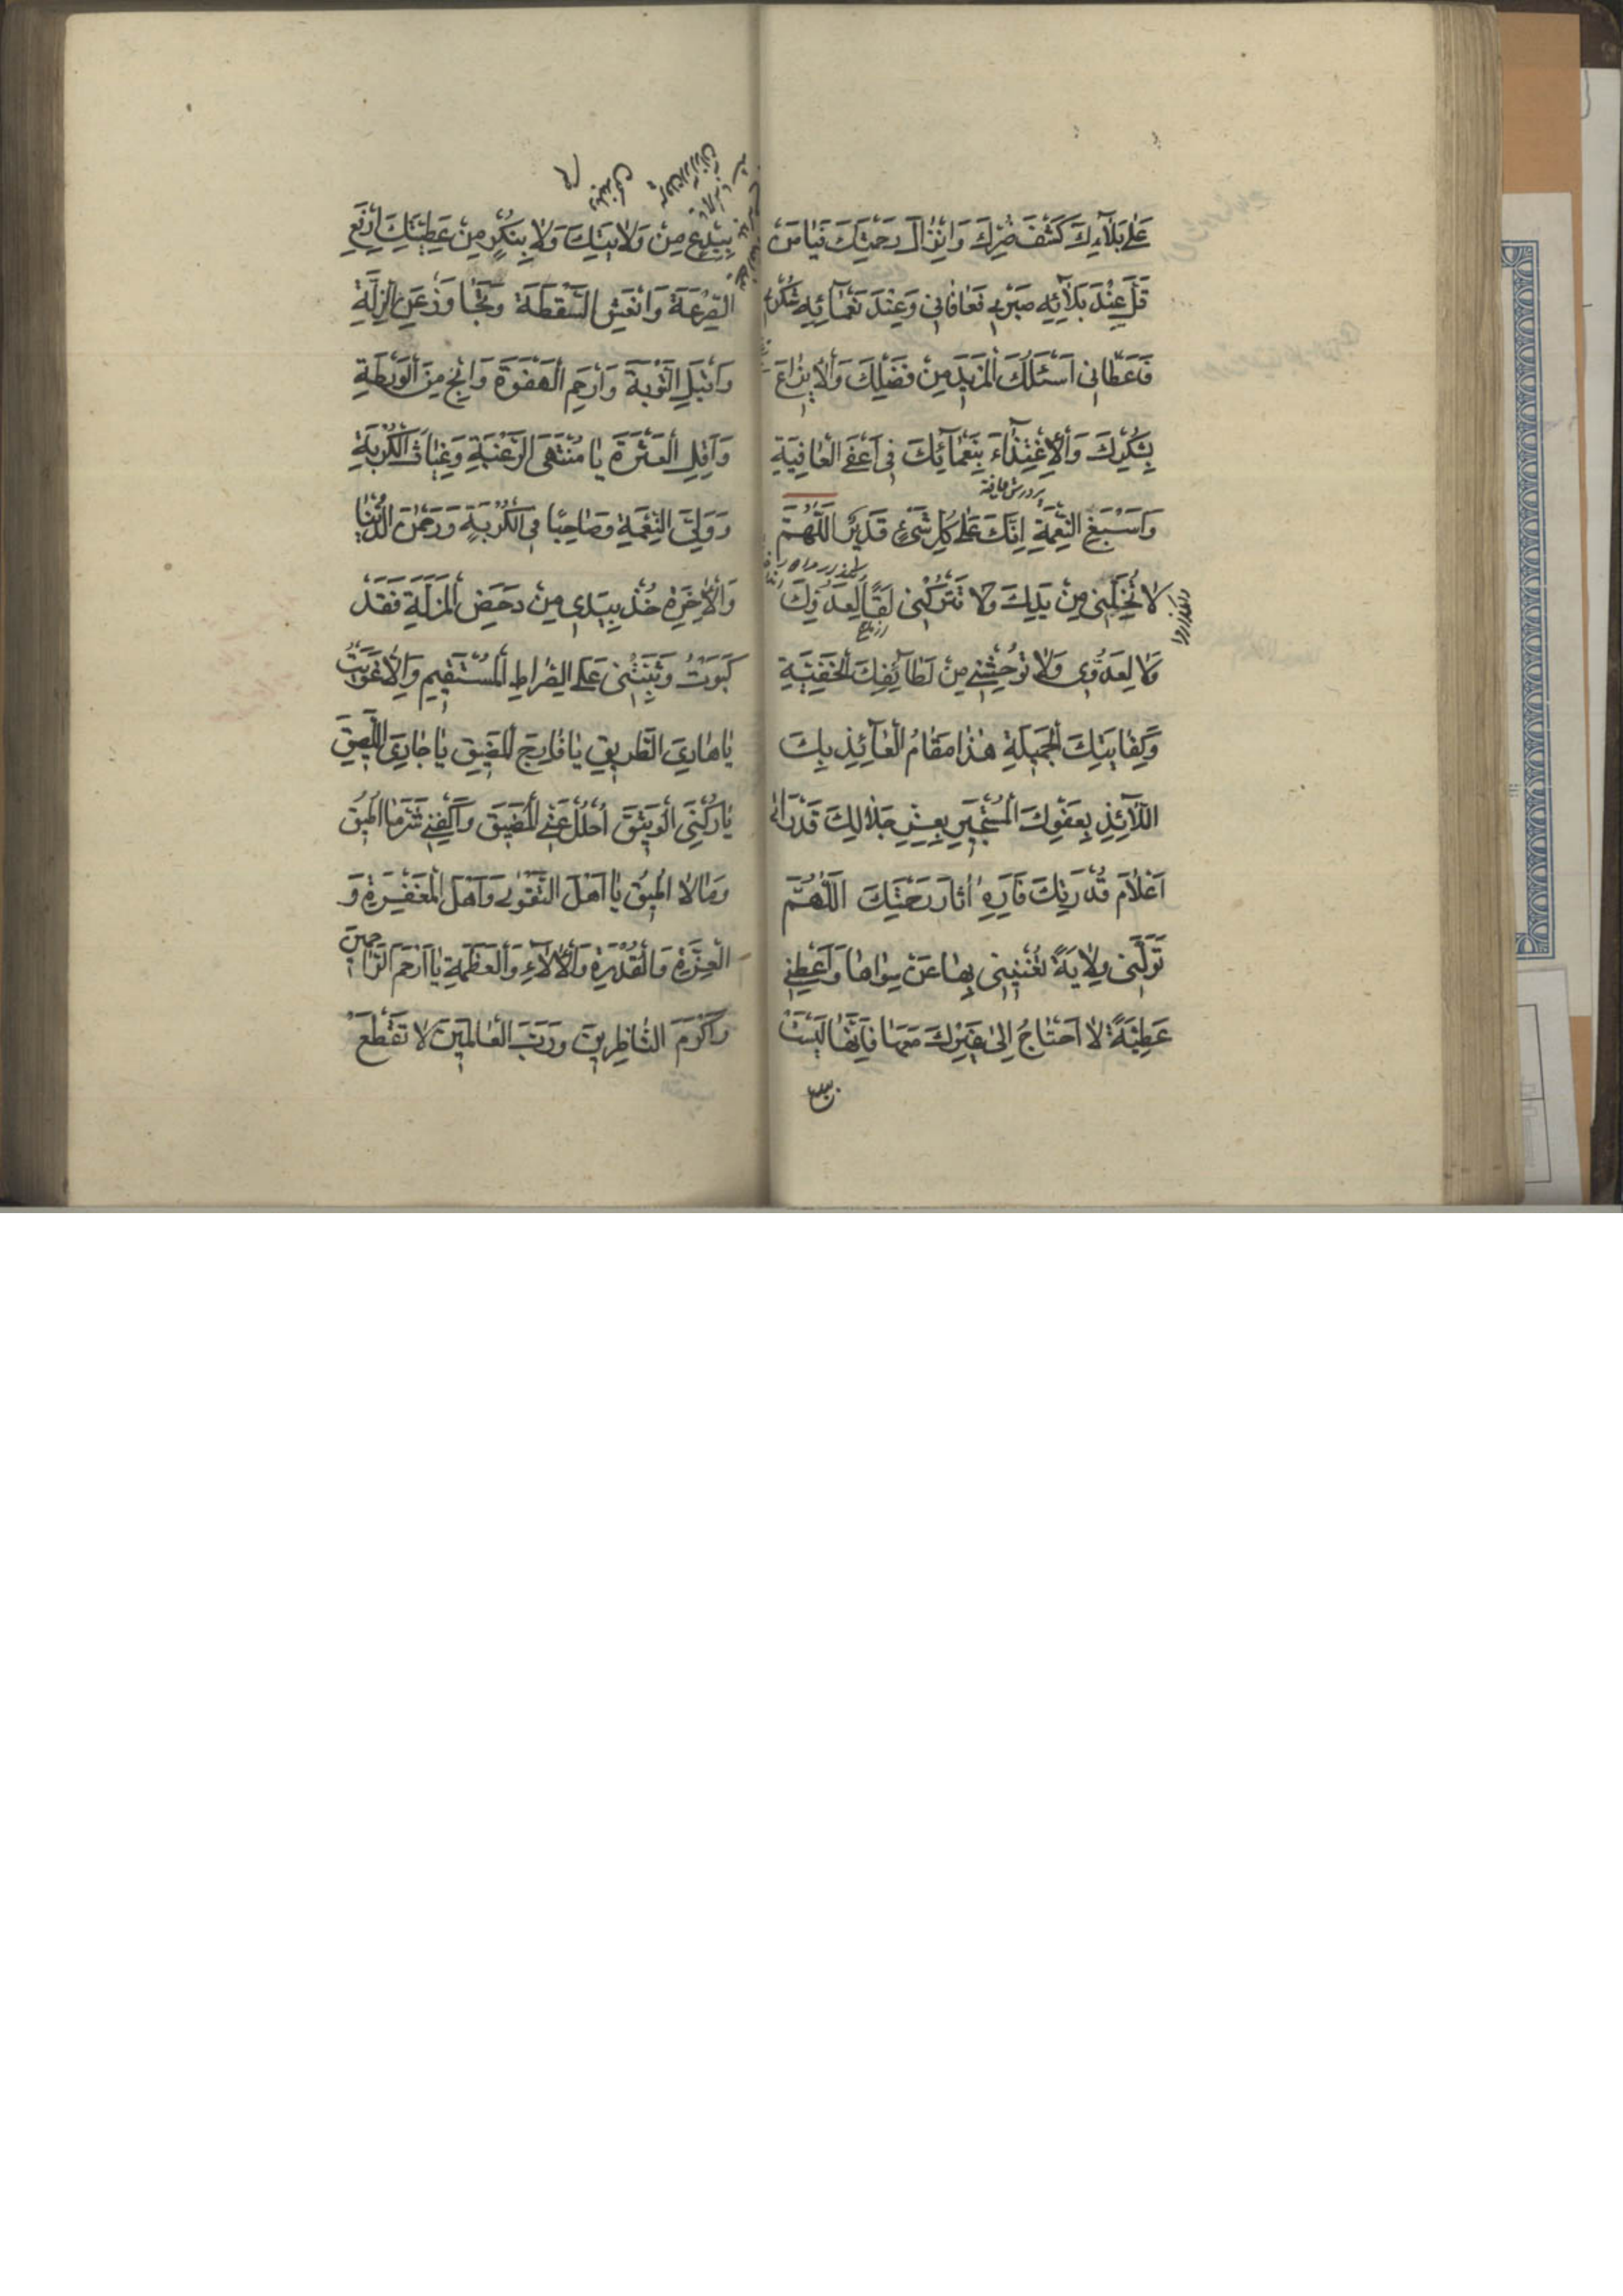 عَلٰى بَلَآءِكَ كَشْفَ ضُرِّكَ وَاِنْزٰالَ رَحْمَتِكَ فَيٰا مَنْ
قَلَّ عِنْدَ بَلَآئِهِ صَبْرِى فَعٰافٰانِى وَعِنْدَ نَعْمٰآئِهِ شُكْرِى
فَاَعْطٰانِى اَسْئَلُكَ الْمَزِيدَ مِنْ فَضْلِكَ وَالْاِيزٰاعَ
بِشُكْرِكَ وَالْاِغْتِذٰآءَ بِنَعْمٰآئِكَ فِى اَعْفَى الْعٰافِيَةِ
پرورش يافتن
وَاَسْبَغِ النِّعْمَةِ اِنَّكَ عَلٰى كُلِّ شَىْءٍ قَدِيرٌ اَللّٰهُمَّ
لٰا تُخَلِّنِى مِنْ يَدِكَ وَلٰا تَتْرُكْنِى لَقًا لِعَدُوِّكَ
وَلٰا لِعَدُوِّى وَلٰا تُوحِشْنِى مِنْ لَطٰآئِفِكَ الْخَفِيَّةِ
وَكِفٰايَتِكَ الْجَمِيلَةِ هٰذٰا مَقٰامُ الْعٰآئِذِ بِكَ
اللّٰآئِذِ بِعَفْوِكَ الْمُسْتَجِيرِ بِعِزِّ جَلٰالِكَ قَدْ رَاٰى
اَعْلٰامَ قُدْرَتِكَ فَاَرِهِ اٰثٰارَ رَحْمَتِكَ اَللّٰهُمَّ
تَوَلَّنِى وِلٰايَةً تُغْنِينِى بِهٰا عَنْ سِوٰاهٰا وَاَعْطِنِى
عَطِيَّةً لٰا اَحْتٰاجُ اِلٰى غَيْرِكَ مَعَهٰا فَاِنَّهٰا لَيْسَتْ
بِبِدْعٍ مِنْ وَلٰايَتِكَ وَلٰا بِنُكْرٍ مِنْ عَطِيَّتِكَ اِرْفَعِ
الصَّرْعَةَ وَانْعَشِ السَّقْطَةَ وَتَجٰاوَزْ عَنِ الزَّلَّةِ
وَاقْبَلِ التَّوْبَةَ وَارْحَمِ الْهَفْوَةَ وَانْجِ مِنَ الْوَرْطَةِ
وَاَقِلِ الْعَثْرَةَ يٰا مُنْتَهَى الرَّغْبَةِ وَغِيٰاثَ الْكُرْبَةِ
وَوَلِىَّ النِّعْمَةِ وَصٰاحِبًا فِى الْكُرْبَةِ وَرَحْمٰنَ الدُّنْيٰا
وَالْاٰخِرَةِ خُذْ بِيَدِى مِنْ دَحْضِ الْمَزَلَّةِ فَقَدْ
كَبَوْتُ وَثَبِّتْنِى عَلَى الصِّرٰاطِ الْمُسْتَقِيمِ وَاِلّٰا غَوَيْتُ
يٰا هٰادِىَ الطَّرِيقِ يٰا فٰارِجَ الْمَضِيقِ يٰا جٰارِىَ اللَّصِيقَ
يٰا رُكْنِىَ الْوَثِيقَ اُحْلُلْ عَنِّى الْمَضِيقَ وَاكْفِنِى شَرَّ مٰا اُطِيقُ
وَمٰا لٰا اُطِيقُ يٰا اَهْلَ التَّقْوٰى وَاَهْلَ الْمَغْفِرَةِ وَ
الْعِزَّةِ وَالْقُدْرَةِ وَالْاٰلٰآءِ وَالْعَظَمَةِ يٰا اَرْحَمَ الرّٰاحِمِينَ
وَاَكْرَمَ النّٰاظِرِينَ وَرَبَّ الْعٰالَمِينَ لٰا تَقْطَعْ